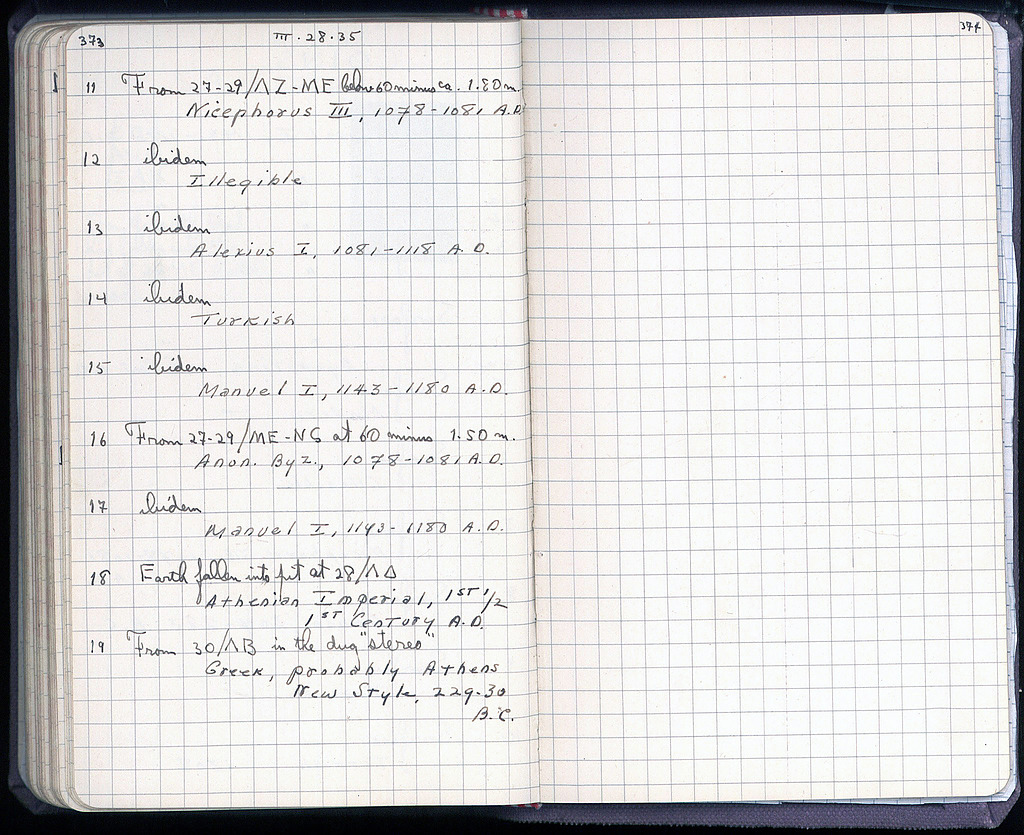 373
III · 28 · 35
11 From 27-29/ΛΖ-ΜΕ below 60 minus ca. 1.80 m.
Nicephorus III, 1078-1081 A.D.
12 ibidem
Illegible
13 ibidem
Alexius I, 1081-1118 A.D.
14 ibidem
Turkish
15 ibidem
Manuel I, 1143-1180 A.D.
16 From 27-29/ΜΕ-ΝϚ at 60 minus 1.50 m.
Anon. Byz., 1078-1081 A.D.
17 ibidem
Manuel I, 1143-1180 A.D.
18 Earth fallen into pit at 28/ΛΔ
Athenian Imperial, 1ST 1/2
1ST Century A.D.
19 From 30/ΛΒ in the dug "stereo"
Greek, probably Athens
New Style, 229-30
B.C.
374